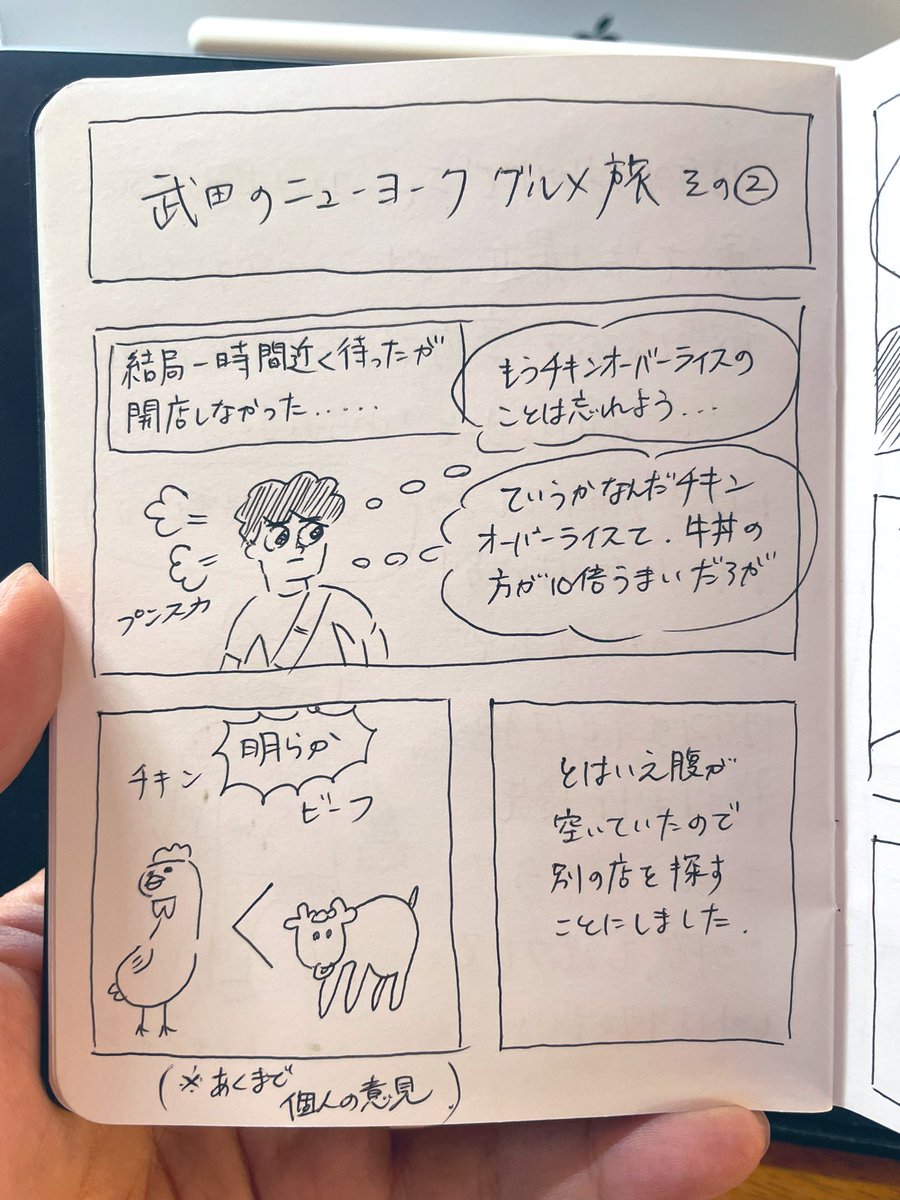 武田のニューヨークグルメ旅 その②
結局一時間近く待ったが
開店しなかった.....
もうチキンオーバーライスの
ことは忘れよう...
ていうかなんだチキン
オーバーライスて.牛丼の
方が10倍うまいだろが
プンスカ
明らか
チキン
ビーフ
<
(※あくまで
個人の意見.)
とはいえ腹が
空いていたので
別の店を探す
ことにしました.